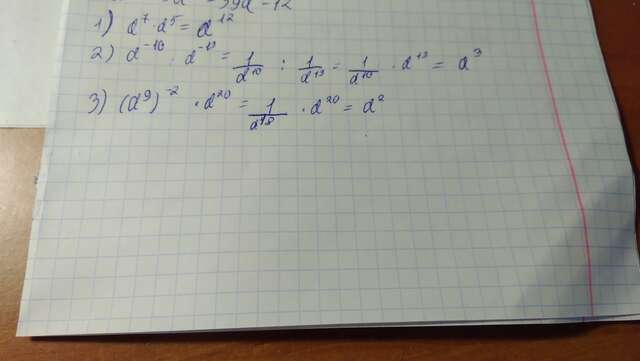 = 39a - 12
1) a⁷ · a⁵ = a¹²
2) a⁻¹⁰ : a⁻¹³ = 1/a¹⁰ : 1/a¹³ = 1/a¹⁰ · a¹³ = a³
3) (a⁹)⁻² · a²⁰ = 1/a¹⁸ · a²⁰ = a²